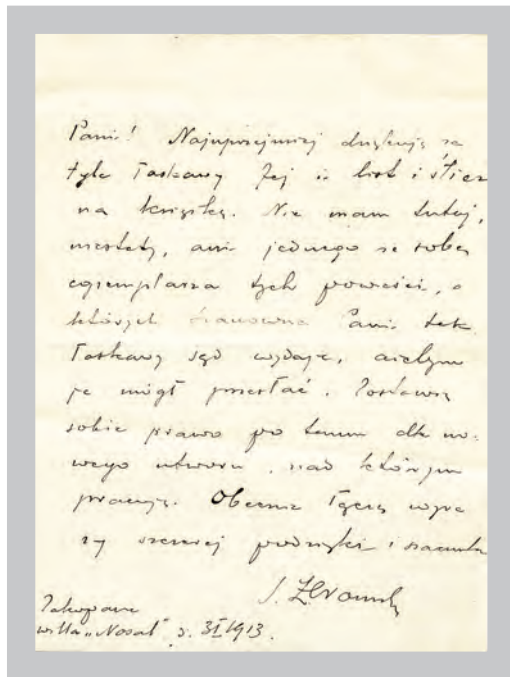 Pani! Najuprzejmiej dziękuję za
tyle łaskawy Jej list i
na książkę. Nie mam tutaj,
niestety, ani jednego ze sobą
egzemplarza tych powieści, o
których Szanowna Pani tak
łaskawy sąd wydaje, ażebym
je mógł przesłać. Zostawię
sobie prawo po temu dla no-
wego utworu, nad którym
pracuję. Obecnie łączę wyra
zy szczerej podzięki i szacunku
S. Żeromski
Zakopane
willa „Nosal” d. 3 I 1913.